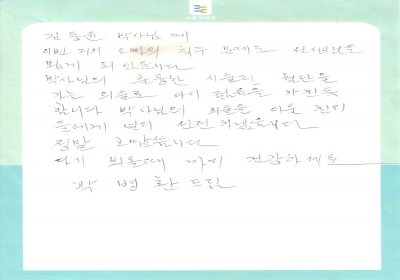 김동윤 박사님 께
이번 저의 오빠의 척추 문제로 선생님을
뵙게 되었습니다
박사님의 훌륭한 시술과 첨단을
가는 의술로 다시 활동을 가진듯
합니다 박사님의 의술을 아는 친지
들에게 널리 선전 하겠습니다
정말 고맙습니다
다시 뵈올때 까지 건강하세요
박 병 환 드림